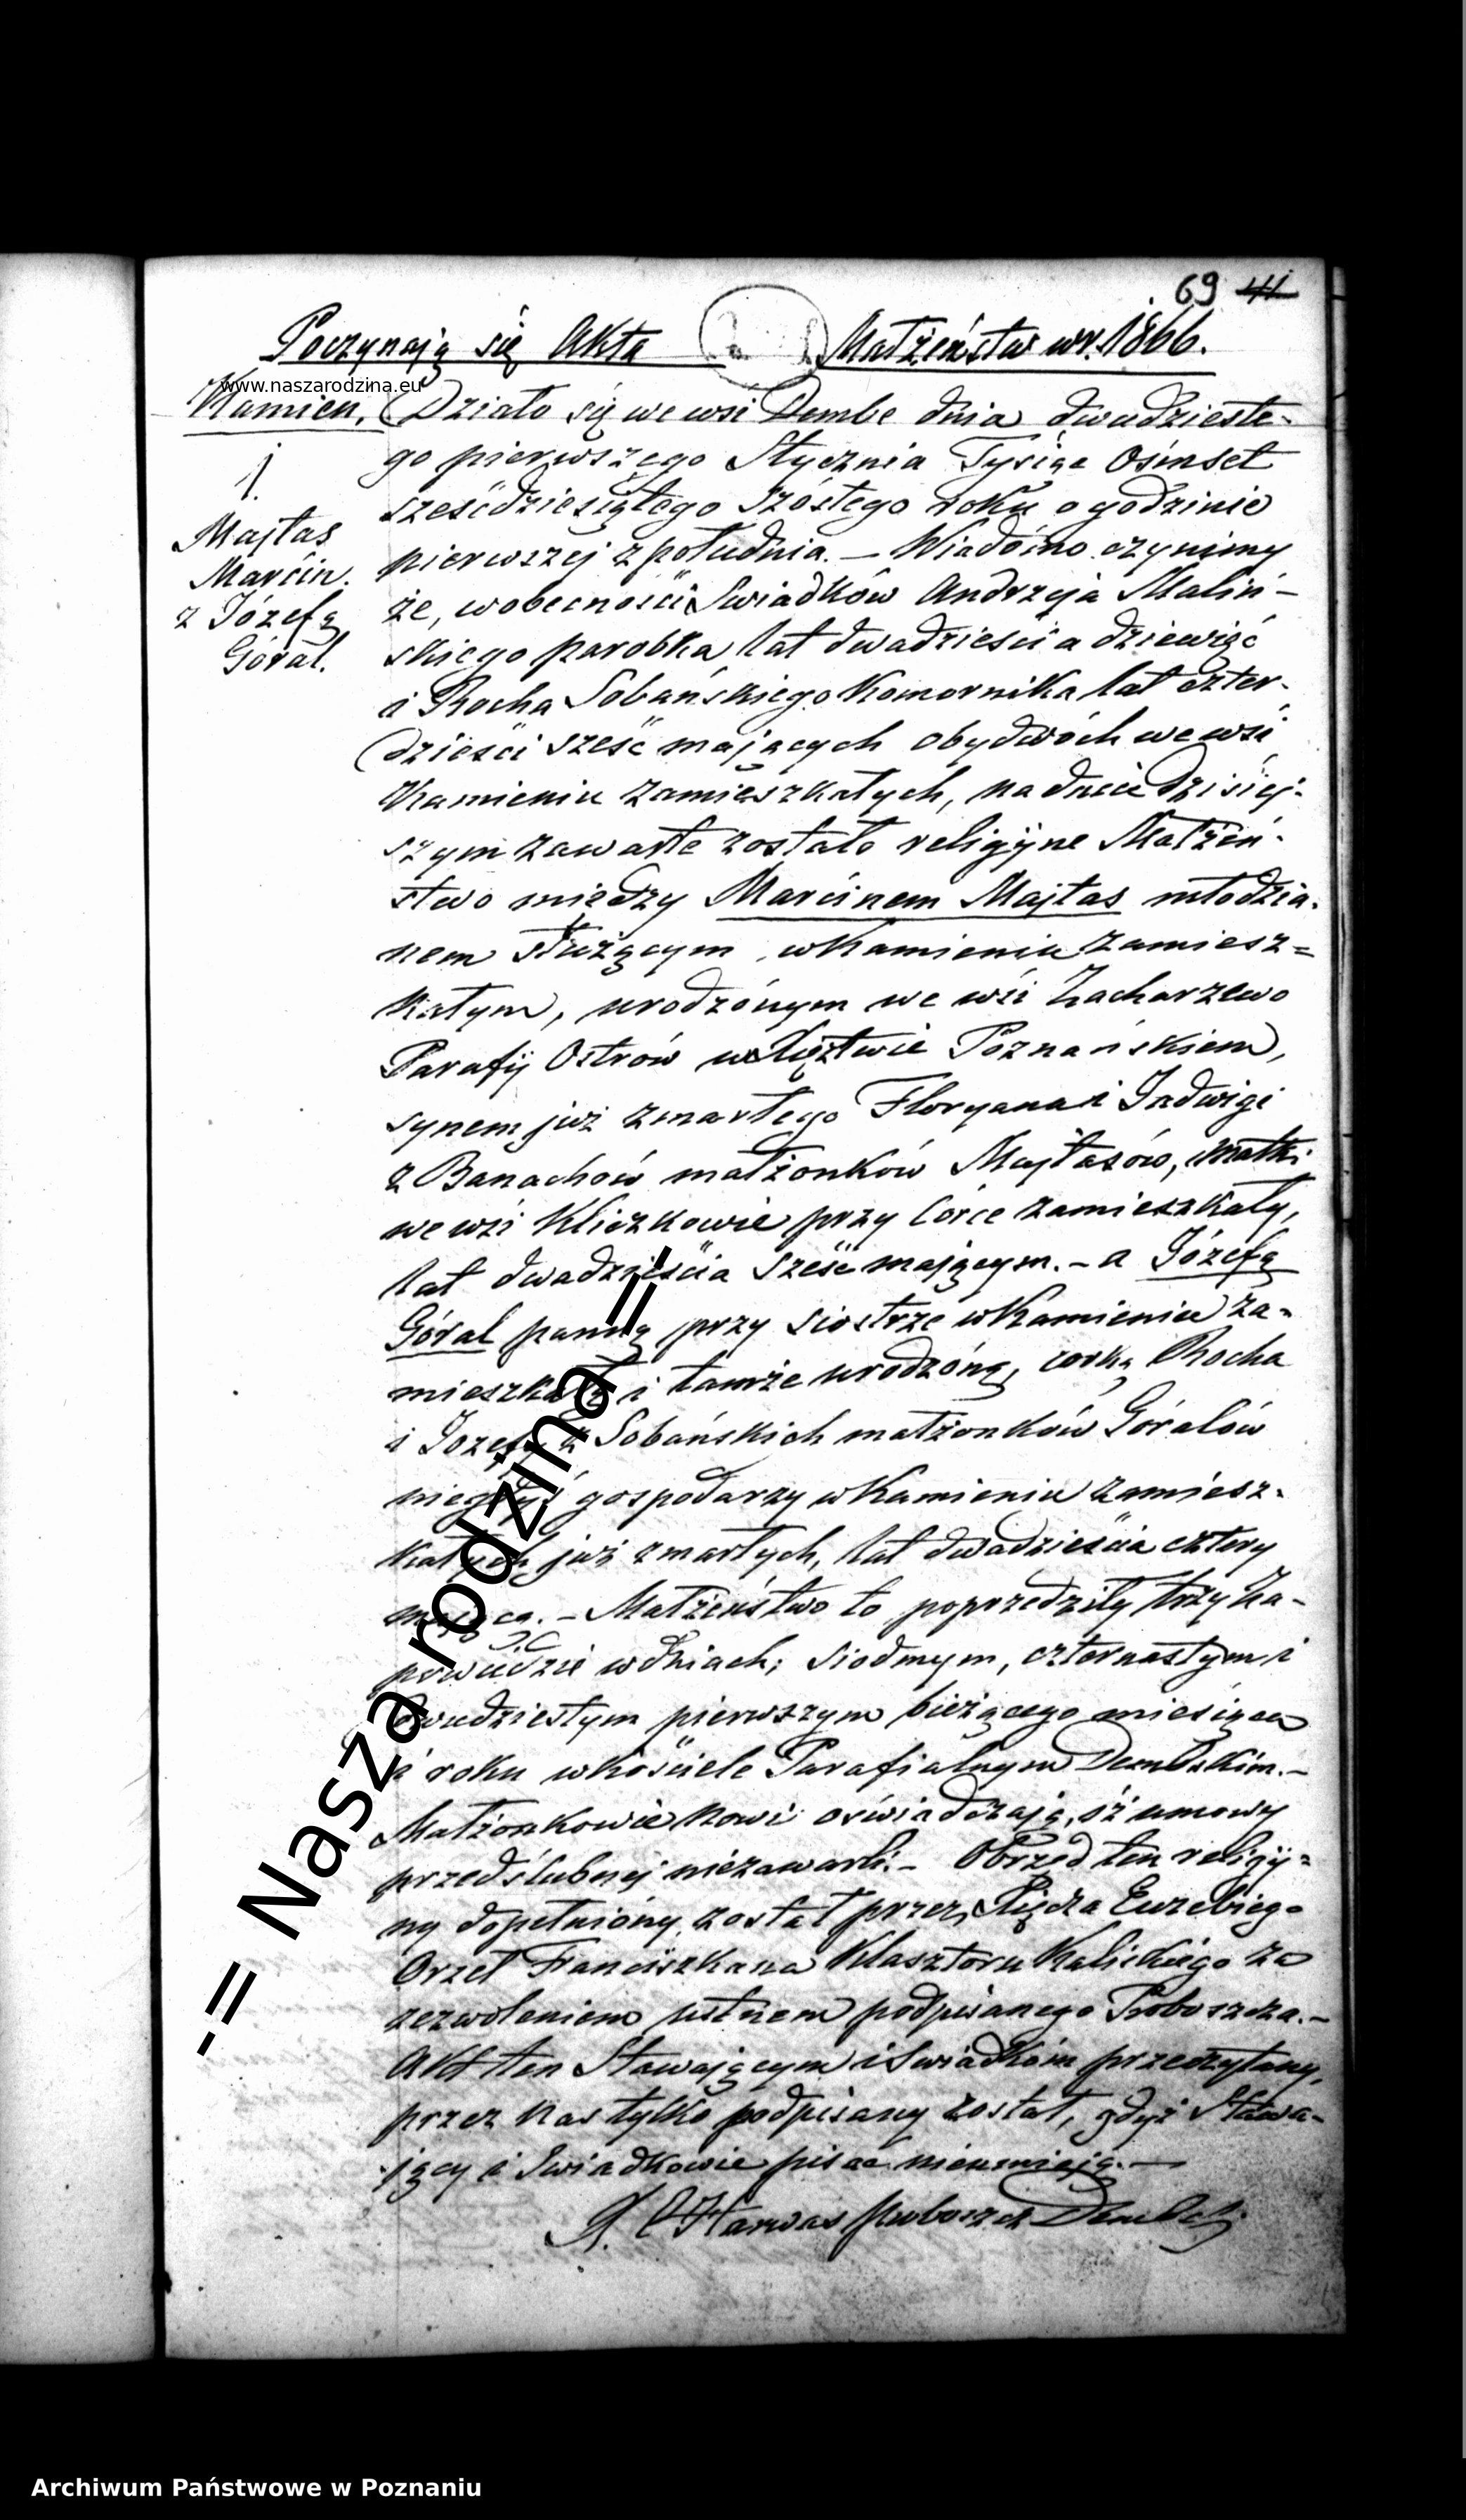 69 41
Poczynają się Akta Małżeństw w r. 1866.
www.naszarodzina.eu
Kamień.
1.
Majtas
Marcin.
z Józefą
Góral.
Działo się we wsi Dembe dnia dwudzieste-
go pierwszego Stycznia Tysiąc Ośmset
sześćdziesiątego szóstego roku o godzinie
pierwszej z południa. – Wiadomo czynimy
że, wobecności Świadków Andrzeja Maliń-
skiego parobka lat dwadzieścia dziewięć
i Rocha Sobańskiego Komornika lat czter-
dzieści sześć mających obydwóch we wsi
Kamieniu zamieszkałych, na dniu dzisiej-
szym zawarte zostało religijne Małżeń-
stwo między Marcinem Majtas młodzia-
nem służącym, w Kamieniu zamiesz=
kałym, urodzonym we wsi Zacharzewo
Parafij Ostrów w Xięztwie Poznańskiem,
synem już zmarłego Floryana i Jadwigi
z Banachów małżonków Majtasów, matki
we wsi Kliczkowie przy Córce zamieszkały,
lat dwadzieścia sześć mającym. – a Józefą
Góral panną przy siostrze w Kamieniu za-
mieszkałą i tamże urodzoną, córką Rocha
i Józefy z Sobańskich małżonków Góralów
niegdyś gospodarzy w Kamieniu zamiesz-
kałych już zmarłych, lat dwadzieścia cztery
mającą. – Małżeństwo to poprzedziły trzy Za-
powiedzie w dniach; siodmym, czternastym i
dwudziestym pierwszym bieżącego miesiąca
i roku w kościele Parafialnym Dembskim. –
Małżonkowie nowi oświadczają, iż umowy
przedślubnej niezawarli. – Obrzęd ten religij=
ny dopełniony został przez Xiędza Euzebiego
Orzeł Franciszkana Klasztoru Kaliskiego za
zezwoleniem ustnem podpisanego Proboszcza. –
Akt ten Stawającym i Świadkom przeczytany,
przez nas tylko podpisany został, gdyż Stawa-
jący i Świadkowie pisać nieumieją. –
X. Harwas Proboszcz Dembski
-= Nasza rodzina =-
Archiwum Państwowe w Poznaniu